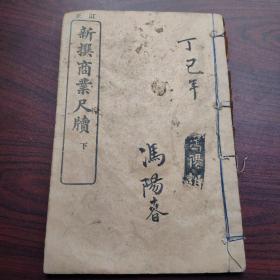 訂正
新撰商業尺牘 下
丁巳年
馮陽春